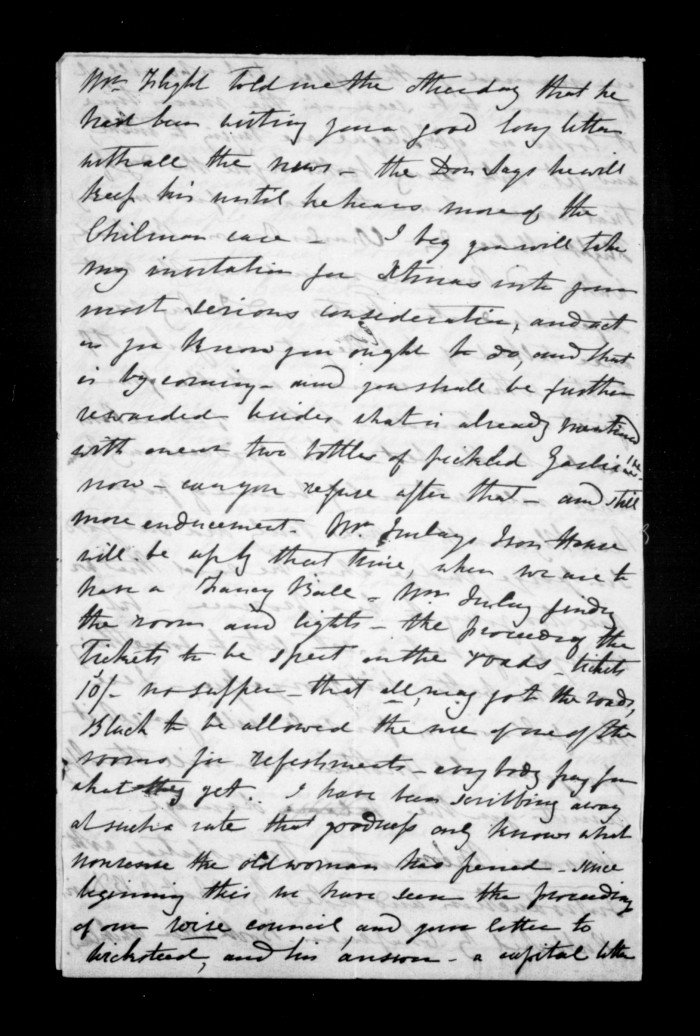 Mr. Flight told me the other day that he
had been writing you a good long letter
with all the news - the Don says he will
keep his until he hears more of the
Chilman case - I beg you will take
my invitation for Xtmas into your
most serious consideration, and act
as you know you ought to do, and that
is by coming - and you shall be further
rewarded besides what is already mentioned
with one or two bottles of pickled
now - can you refuse after that - and still
more enducement. Mr. Imlays Iron House
will be up by that time, when we are to
have a Fancy Ball - Mr Imlay finding
the room and lights - the proceeds of the
Tickets to be spent on the roads - tickets
10/- no supper - that all, may go to the roads,
Black to be allowed the use of one of the
rooms for refeshments - every body pay for
what they get. I have been scribbing away
at such a rate that goodness only knows what
nonsense the old woman has penned - since
beginning this we have seen the proceeding
of our wise council and your letter to
Wicksteed, and his answer - a capital letter